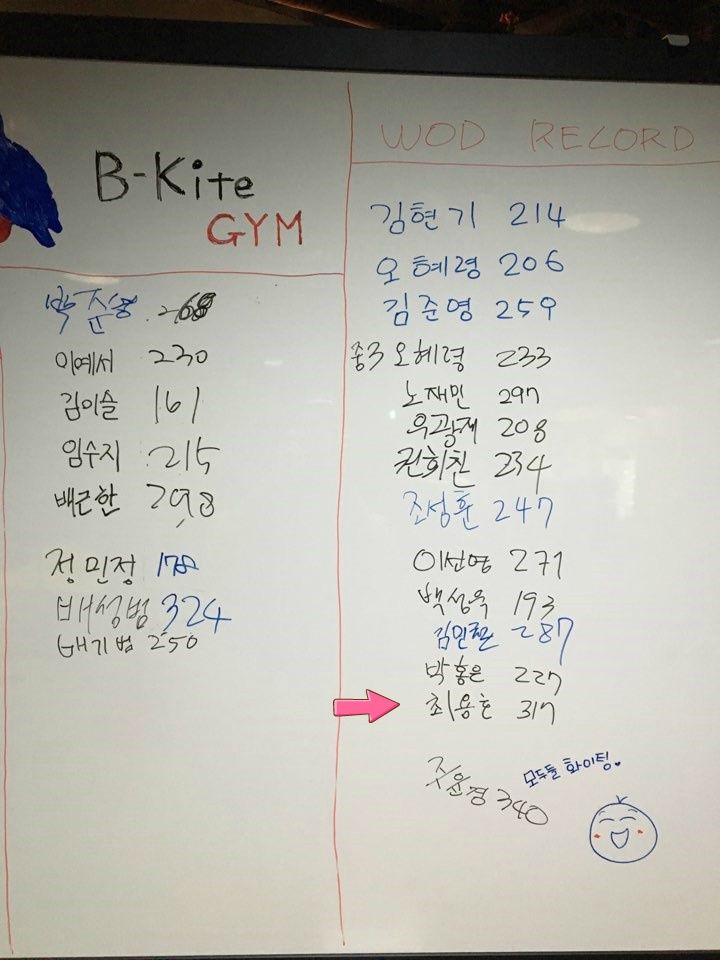 B-Kite
GYM
박준영 268
이예서 230
김이슬 161
임수지 215
배근한 298
정민정 178
배성범 324
배기범 250
WOD RECORD
김현기 214
오혜령 206
김준영 259
중3 오혜령 233
노재민 297
우광제 208
권희찬 234
조성훈 247
이선영 271
백성욱 193
김민철 287
박홍은 227
최용호 317
윤경 340
모두들 화이팅.